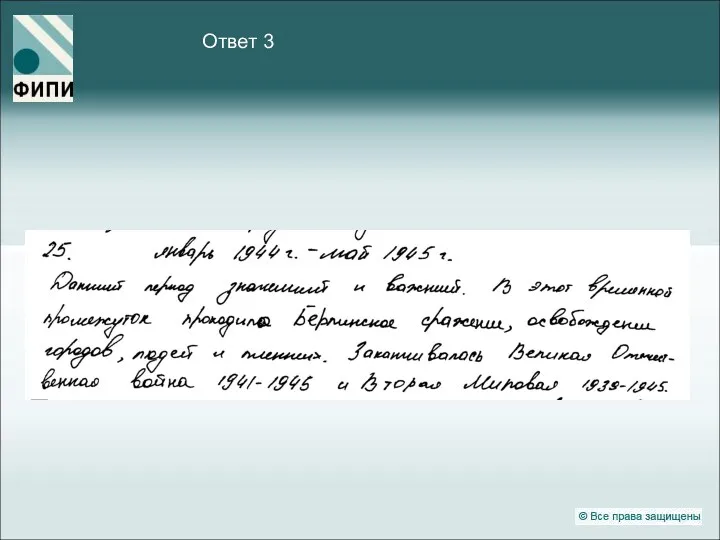 Ответ 3
ФИПИ
25. январь 1944 г. – май 1945 г.
Данный период знаменит и важный. В этот временной
промежуток проходило Берлинское сражение, освобождение
городов, людей и пленных. Заканчивалась Великая Отечест-
венная война 1941-1945 и Вторая Мировая 1939-1945.
© Все права защищены